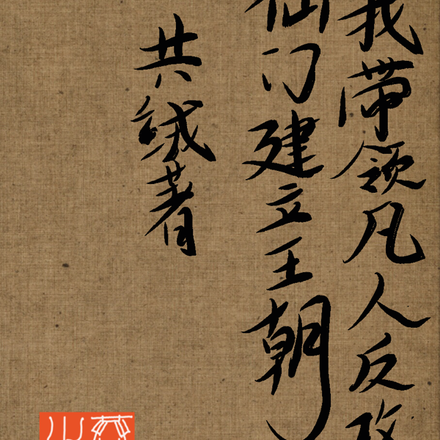 我带领凡人反攻
仙门建立王朝
共著